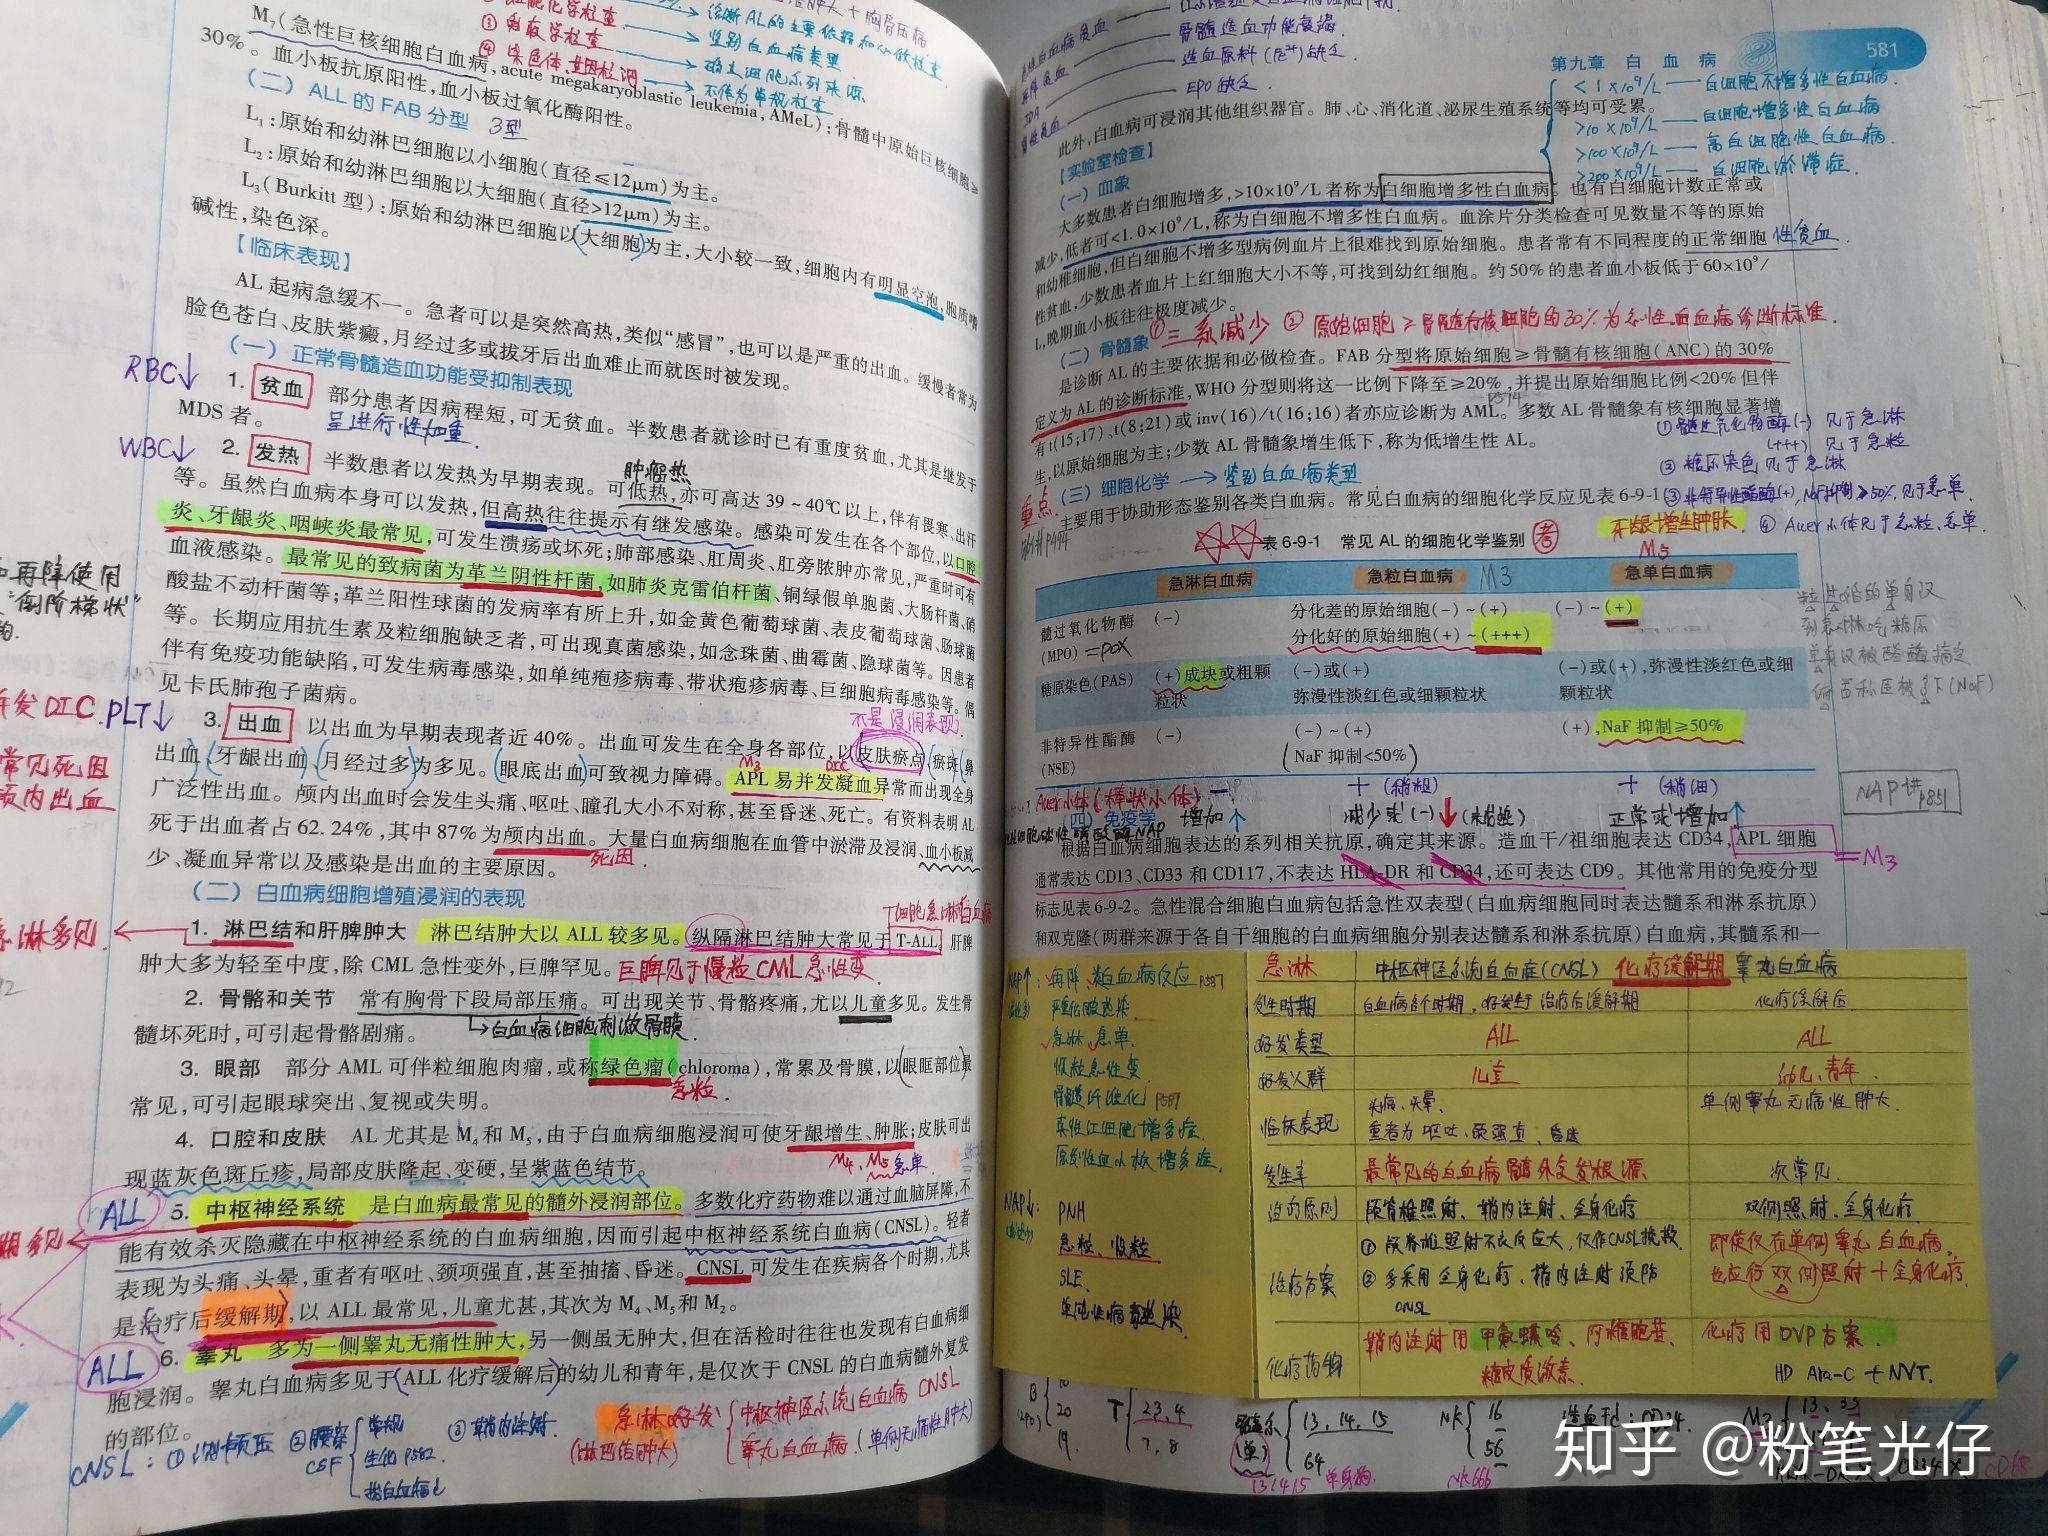 M₇(急性巨核细胞白血病, acute megakaryoblastic leukemia, AMeL):骨髓中原始巨核细胞≥
30%。血小板抗原阳性,血小板过氧化酶阳性。
(二) ALL 的 FAB 分型 3型
L₁:原始和幼淋巴细胞以小细胞(直径≤12μm)为主。
L₂:原始和幼淋巴细胞以大细胞(直径>12μm)为主。
L₃(Burkitt 型):原始和幼淋巴细胞以大细胞为主,大小较一致,细胞内有明显空泡,胞质嗜
碱性,染色深。
【临床表现】
AL 起病急缓不一。急者可以是突然高热,类似“感冒”,也可以是严重的出血。缓慢者常为
脸色苍白、皮肤紫癜,月经过多或拔牙后出血难止而就医时被发现。
(一) 正常骨髓造血功能受抑制表现
RBC↓
1. 贫血 部分患者因病程短,可无贫血。半数患者就诊时已有重度贫血,尤其是继发于
MDS 者。 呈进行性加重.
WBC↓
肿瘤热
2. 发热 半数患者以发热为早期表现。可低热,亦可高达 39~40℃以上,伴有畏寒、出汗
等。虽然白血病本身可以发热,但高热往往提示有继发感染。感染可发生在各个部位,以口腔
炎、牙龈炎、咽峡炎最常见,可发生溃疡或坏死;肺部感染、肛周炎、肛旁脓肿亦常见,严重时可有
血液感染。最常见的致病菌为革兰阴性杆菌,如肺炎克雷伯杆菌、铜绿假单胞菌、大肠杆菌、硝
酸盐不动杆菌等;革兰阳性球菌的发病率有所上升,如金黄色葡萄球菌、表皮葡萄球菌、肠球菌
等。长期应用抗生素及粒细胞缺乏者,可出现真菌感染,如念珠菌、曲霉菌、隐球菌等。因患者
伴有免疫功能缺陷,可发生病毒感染,如单纯疱疹病毒、带状疱疹病毒、巨细胞病毒感染等。偶
见卡氏肺孢子菌病。
PLT↓
不是浸润表现
3. 出血 以出血为早期表现者近 40%。出血可发生在全身各部位,以皮肤瘀点、瘀斑、鼻
出血、牙龈出血、月经过多为多见。眼底出血可致视力障碍。APL 易并发凝血异常而出现全身
广泛性出血。颅内出血时会发生头痛、呕吐、瞳孔大小不对称,甚至昏迷、死亡。有资料表明 AL
死于出血者占 62.24%,其中 87% 为颅内出血。大量白血病细胞在血管中淤滞及浸润、血小板减
死因
少、凝血异常以及感染是出血的主要原因。
(二) 白血病细胞增殖浸润的表现
1. 淋巴结和肝脾肿大 淋巴结肿大以 ALL 较多见。纵隔淋巴结肿大常见于 T-ALL。肝脾
肿大多为轻至中度,除 CML 急性变外,巨脾罕见。巨脾见于慢粒CML急性变
2. 骨骼和关节 常有胸骨下段局部压痛。可出现关节、骨骼疼痛,尤以儿童多见。发生骨
髓坏死时,可引起骨骼剧痛。 →白血病细胞刺激骨膜
3. 眼部 部分 AML 可伴粒细胞肉瘤,或称绿色瘤(chloroma),常累及骨膜,以眼眶部位最
急粒.
常见,可引起眼球突出、复视或失明。
4. 口腔和皮肤 AL 尤其是 M₄和 M₅,由于白血病细胞浸润可使牙龈增生、肿胀;皮肤可出
M₄、M₅急单
现蓝灰色斑丘疹,局部皮肤隆起、变硬,呈紫蓝色结节。
ALL
5. 中枢神经系统 是白血病最常见的髓外浸润部位。多数化疗药物难以通过血脑屏障,不
能有效杀灭隐藏在中枢神经系统的白血病细胞,因而引起中枢神经系统白血病(CNSL)。轻者
表现为头痛、头晕,重者有呕吐、颈项强直,甚至抽搐、昏迷。CNSL 可发生在疾病各个时期,尤其
是治疗后缓解期,以 ALL 最常见,儿童尤甚,其次为 M₄、M₅和 M₂。
ALL
6. 睾丸 多为一侧睾丸无痛性肿大,另一侧虽无肿大,但在活检时往往也发现有白血病细
胞浸润。睾丸白血病多见于 ALL 化疗缓解后的幼儿和青年,是仅次于 CNSL 的白血病髓外复发
的部位。
急淋好发 中枢神经系统白血病 CNSL
(淋巴结肿大) 睾丸白血病 (单侧无痛性肿大)
第九章 白血病 581
<1×10⁹/L — 白细胞不增多性白血病.
>10×10⁹/L — 白细胞增多性白血病
>100×10⁹/L — 高白细胞性白血病.
>200×10⁹/L — 白细胞淤滞症.
骨髓造血功能衰竭
EPO缺乏
此外,白血病可浸润其他组织器官。肺、心、消化道、泌尿生殖系统等均可受累。
【实验室检查】
(一) 血象
大多数患者白细胞增多,>10×10⁹/L 者称为白细胞增多性白血病。也有白细胞计数正常或
减少,低者可<1.0×10⁹/L,称为白细胞不增多性白血病。血涂片分类检查可见数量不等的原始
和幼稚细胞,但白细胞不增多型病例血片上很难找到原始细胞。患者常有不同程度的正常细胞
性贫血,少数患者血片上红细胞大小不等,可找到幼红细胞。约 50% 的患者血小板低于 60×10⁹/
L,晚期血小板往往极度减少。
①三系减少 ② 原始细胞≥骨髓有核细胞的30%为急性白血病诊断标准.
(二) 骨髓象
是诊断 AL 的主要依据和必做检查。FAB 分型将原始细胞≥骨髓有核细胞(ANC)的 30%
定义为 AL 的诊断标准,WHO 分型则将这一比例下降至≥20%,并提出原始细胞比例<20% 但伴
有 t(15;17)、t(8;21)或 inv(16)/t(16;16)者亦应诊断为 AML。多数 AL 骨髓象有核细胞显著增
生,以原始细胞为主;少数 AL 骨髓象增生低下,称为低增生性 AL。
(三) 细胞化学 → 鉴别白血病类型
重点
主要用于协助形态鉴别各类白血病。常见白血病的细胞化学反应见表 6-9-1
牙龈增生肿胀 M₅
表 6-9-1 常见 AL 的细胞化学鉴别 考
急淋白血病 急粒白血病 M3 急单白血病
髓过氧化物酶(MPO)=POX (-) 分化差的原始细胞(-)~(+) (-)~(+)
分化好的原始细胞(+)~(+++)
糖原染色(PAS) (+)成块或粗颗粒状 (-)或(+) 弥漫性淡红色或细颗粒状 (-)或(+),弥漫性淡红色或细颗粒状
非特异性酯酶(NSE) (-) (-)~(+) NaF 抑制<50% (+),NaF 抑制≥50%
Auer小体(棒状小体) - +(稍粗) +(稍细)
增加↑ 减少或(-)↓ 正常或增加↑
NAP P851
(四) 免疫学
根据白血病细胞表达的系列相关抗原,确定其来源。造血干/祖细胞表达 CD34,APL 细胞
=M3
通常表达 CD13、CD33 和 CD117,不表达 HLA-DR 和 CD34,还可表达 CD9。其他常用的免疫分型
标志见表 6-9-2。急性混合细胞白血病包括急性双表型(白血病细胞同时表达髓系和淋系抗原)
和双克隆(两群来源于各自干细胞的白血病细胞分别表达髓系和淋系抗原)白血病,其髓系和一
NAP↑: 再障、类白血病反应 P587
严重化脓感染.
急淋、急单.
慢粒急性变.
骨髓纤维化 P587
真性红细胞增多症.
原发性血小板增多症.
NAP↓: PNH
急粒、慢粒
SLE.
急淋 中枢神经系统白血症(CNSL) 化疗缓解期 睾丸白血病
发生时期 白血病各个时期,好发于治疗后缓解期 化疗缓解后
好发类型 ALL ALL
好发人群 儿童 幼儿、青年.
临床表现 头痛、头晕、 单侧睾丸无痛性肿大.
重者为呕吐、颈强直、昏迷
发生率 最常见的白血病髓外复发根源. 次常见.
治疗原则 颅脊椎照射、鞘内注射、全身化疗 双侧照射、全身化疗
治疗方案 ①颅脊椎照射不良反应大,仅作CNSL挽救. 即使仅有单侧睾丸白血病,
②多采用全身化疗、鞘内注射预防CNSL 也应行双侧照射+全身化疗.
化疗药物 鞘内注射用甲氨蝶呤、阿糖胞苷、糖皮质激素. 化疗用DVP方案.
HD Ara-C + NVT.
知乎 @粉笔光仔